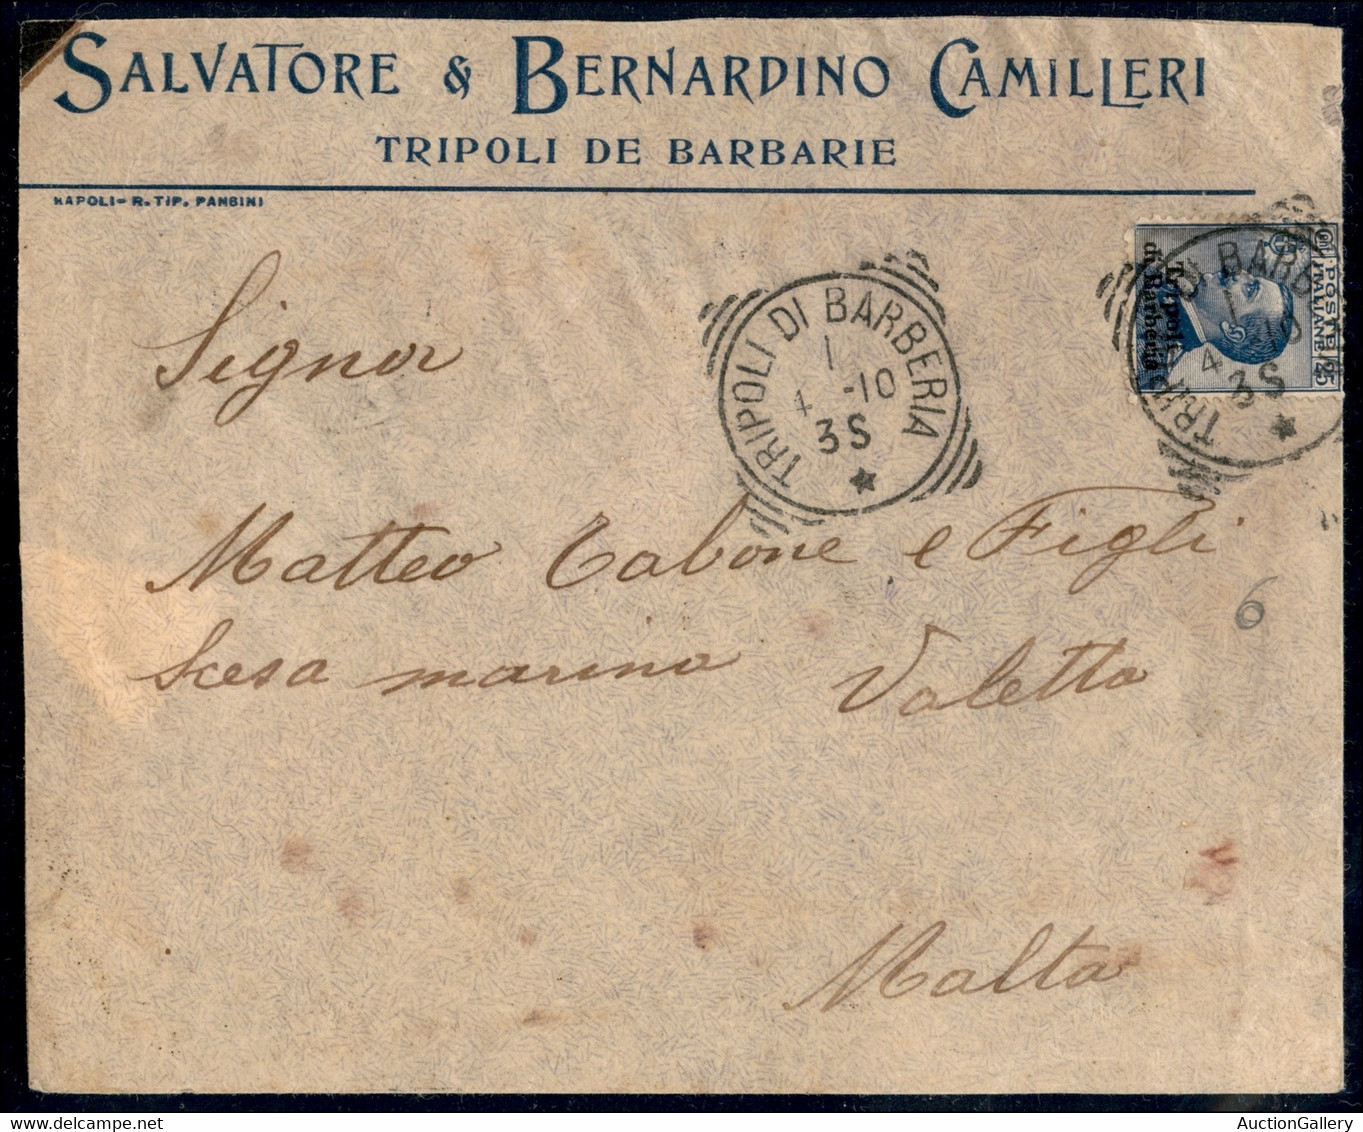 SALVATORE & BERNARDINO CAMILLERI
TRIPOLI DE BARBARIE
NAPOLI - R. TIP. PANSINI
POSTE ITALIANE
25
Tripoli
di Barberia
TRIPOLI DI BARBERIA
1
4 -10
3S
TRIPOLI DI BARB
1
4 10
3S
Signor
Matteo Cabone e Figli
6
Scesa marina Valetta
Malta
AuctionGallery